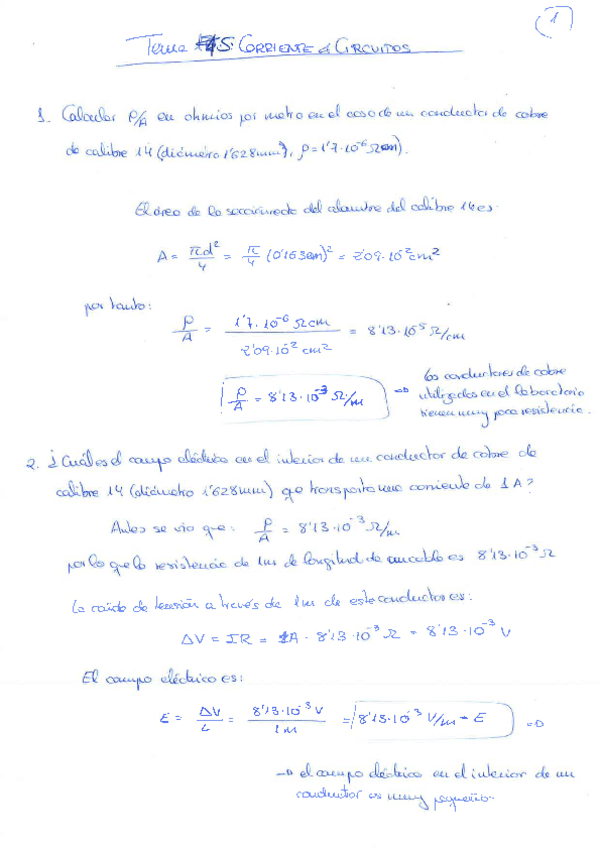 1
Tema 5: CORRIENTE & CIRCUITOS
1. Calcular ρ/A en ohmios por metro en el caso de un conductor de cobre
de calibre 14 (diámetro 1'628mm), ρ=1'7·10⁻⁶ Ωcm).
El área de la sección recta del alambre del calibre 14 es
A = πd²/4 = π/4 (0'163cm)² = 2'09·10⁻² cm²
por tanto:
ρ/A = 1'7·10⁻⁶ Ωcm / 2'09·10⁻² cm² = 8'13·10⁻⁵ Ω/cm
ρ/A = 8'13·10⁻³ Ω/m ⇒ los conductores de cobre
utilizados en el laboratorio
tienen muy poca resistencia.
2. ¿Cuál es el campo eléctrico en el interior de un conductor de cobre de
calibre 14 (diámetro 1'628mm) que transporta una corriente de 1A?
Antes se vio que: ρ/A = 8'13·10⁻³ Ω/m
por lo que la resistencia de 1m de longitud de cable es 8'13·10⁻³ Ω
La caída de tensión a través de 1m de este conductor es:
ΔV = IR = 1A · 8'13·10⁻³ Ω = 8'13·10⁻³ V
El campo eléctrico es:
E = ΔV/L = 8'13·10⁻³ V / 1m = 8'13·10⁻³ V/m = E ⇒
⇒ el campo eléctrico en el interior de un
conductor es muy pequeño.